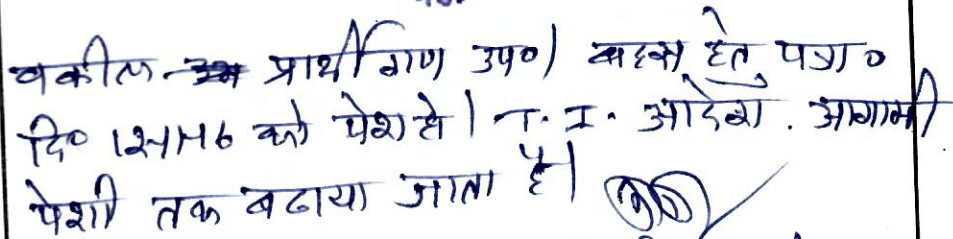 वकील प्रार्थीगण उप०। बहस हेतु पत्रा०
दि० को पेश हो। T. I. आदेश. आगामी
पेशी तक बढाया जाता है।